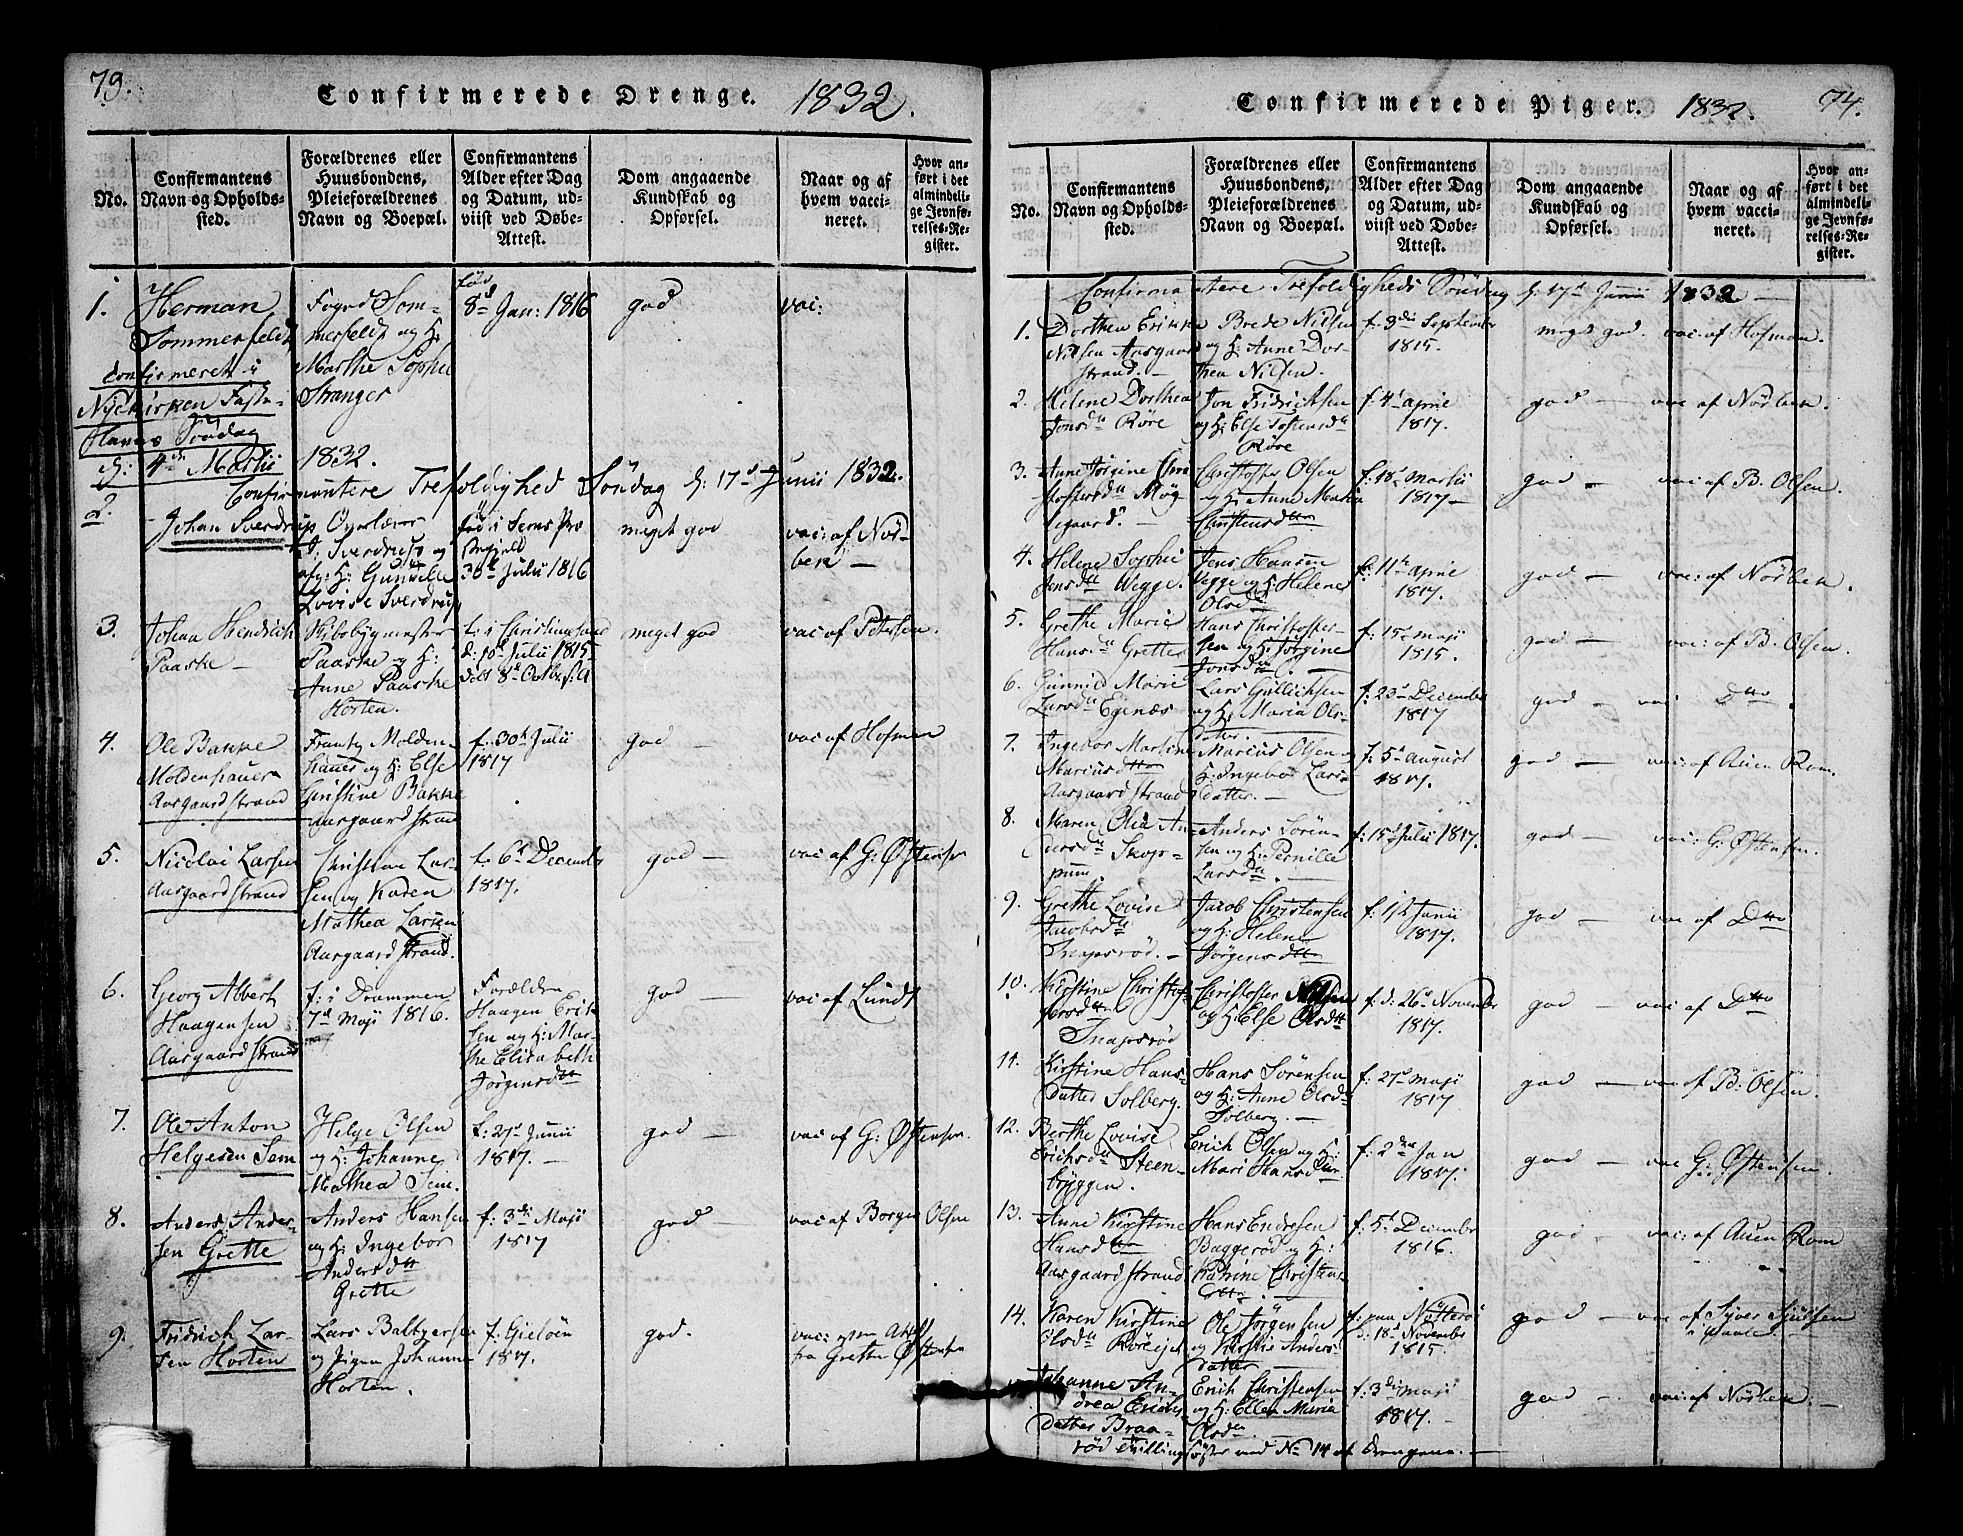 79.
Confirmerede Drenge. 1832.
No.
Confirmantens Navn og Opholds-sted.
Forældrenes eller Huusbondens, Pleieforældrenes Navn og Boepæl.
Confirmantens Alder efter Dag og Datum, ud-viist ved Døbe-Attest.
Dom angaaende Kundskab og Opførsel.
Naar og af hvem vacci-neret.
Hvor an-ført i det almindeli-ge Jevnfø-relses-Re-gister.
1. Herman
Sommerfeldt
confirmeret i
Nyekirken Faste-
Søndag
d: 4de Martii 1832.
Foged Som-
merfeldt og H:
Marthe Sophie
Stranger
Fød
8de Jan: 1816
god
vac:
Confirmantere Trefoldighed Søndag d: 17de Junii 1832.
2.
Johan Sverdrup
Overlærer
J. Sverdrup og
afg: H: Gunnille
Lovise Sverdrup
fød i Sems Præ
stegield
30te Julii 1816
meget god
vac: af Nør-
bek —
3. Johan Hendrich
Paaske —
Skibsbygmester
Paaske og H:
Anne Paaske
Horten.
f: i Christiansand
d: 10de Julii 1815
meget god
vac af Petersen.
4. Ole Bakke
Moldenhauer
Aasgaardstrand
Frantz Molden-
hauer og H: Else
Christine Bakke
Aasgaardstrand
f: 30te Julii
1817
god —
vac af Hofman
5. Nicolai Larsen
Aasgaardstrand
Christian Lar-
sen og Karen
Mathea Larsen
Aasgaardstrand.
f: 6te December
1817.
god —
vac af G: Østensen
6. Georg Albert
Haagensen
Aasgaardstrand
f: i Drammen
7de Maji 1816.
Forældre
Haagen Erik
sen og H: Mar-
the Elisabeth
Jørgensdtr
god —
vac af Lundt
7. Ole Anton
Helgesen Sem
Helge Olsen
og H: Johanne
Mathea Sem.
f: 21de Junii
1817. —
god —
vac af G: Østensen.
8. Anders Ander-
sen Grette
Anders Hansen
og H: Ingebor
Andersdtr
Grette
f: 3die Maji
1817
god —
vac af Borger Olsen
9. Fridrich Lar-
sen Horten
Lars Baltzersen
og Pigen Johanne
Horten.
1817.
god.
vac:
fra Grette Østensen
74.
Confirmerede Piger. 1832.
No.
Confirmantens Navn og Opholds-sted.
Forældrenes eller Huusbondens, Pleieforældrenes Navn og Boepæl.
Confirmantens Alder efter Dag og Datum, ud-viist ved Døbe-Attest.
Dom angaaende Kundskab og Opførsel.
Naar og af hvem vacci-neret.
Hvor an-ført i det almindeli-ge Jevnfø-relses-Re-gister.
Confirmantere Trefoldigheds Søndag d: 17de Junii 1832 —
1. Dorthea Erikke
Nilsen Aasgaard
strand. —
Brede Nilsen
og H: Anne Dor-
thea Nilsen.
f: 3die September
1815.
meget god.
vac af Hofman.
2. Helene Dorthea
Jonsdtr Røre
Jon Fridrichsen
og H: Else Tostensdtr
Røre
f: 4de april
1817.
god —
vac af Nörbek.
3. Anne Jørgine Chri
stofersdtr Møg
legaard. —
Christoffer Olsen
og H: Anne Maria
Christensdtr
f: 18de Martii
1817 —
god —
vac: af B. Olsen.
4. Helene Sophie
Jensdtr Wegge.
Jens Hansen
Vegge og H: Helene
Olsdtr
f: 11te april
1817.
god —
vac: af Nörbek.
5. Grethe Marie
Hansdtr Grette
Hans Christoffer-
sen og H: Jörgine
Jonsdtr.
f: 15de maji
1815.
god —
vac: af B. Olsen.
6. Gunnild Marie
Larsdtr Egenæs
Lars Gullichsen
og H: Maria Ols-
datter.
f: 23de December
1817
god —
vac: Dtto.
7. Ingebor Martine
Mariusdtr
Aasgaardstrand
Marius Olsen og
H: Ingebor Lars-
datter. —
f: 5te august
1817.
god —
vac: af Auen Rom.
8. Maren Olea An-
dersdtr Skop-
pum. —
Anders Sören-
sen og H: Pernille
Larsdtr.
f: 15de Julii 1817.
god —
vac: G: Østensen.
9. Grethe Lovise
Jacobsdtr
Snapsrød. —
Jacob Christensen
og H: Helene
Jörgensdtr
f: 1ste Junii
1817.
god —
vac af Dtto
10. Kirstine Christof-
fersdtr
Snapsrød
Christoffer Nilsen
og H: Else Olsdtr
f: d: 26de November
1817.
god —
vac af Dtto
11. Kirstine Hans-
datter Solberg.
Hans Sørensen
og H: Anne Olsdtr
Solberg. —
f: 27de maji
1817
god —
vac af B: Olsen.
12. Berthe Lovise
Erichsdtr Steen-
bryggen.
Erich Olsen og H:
Mari Hansdtr.
f: 2den Jan
1817.
god —
vac G: Østensen.
13. Anne Kirstine
Hansdtr
Aasgaardstrand
Hans Endresen
Baggerød og H:
Katrine Christens
dtr. —
f: 5te December
1816.
god —
vac: af Auen Rom
14. Karen Kirstine
Olsdtr Røreiet
Ole Jørgensen
og Kirstie Anders-
datter
f: paa Nötterö
d: 18de November
1815.
god —
vac af Syver Sjulsen
Johanne An-
drea Erichs
datter Braa-
rød
Erich Christensen
og H: Ellen Maria
Olsdtr
Tvillingsøster med No 14 af Drengene. —
f: 3die maji
1817. —
god —
vac: af Nörbek. —